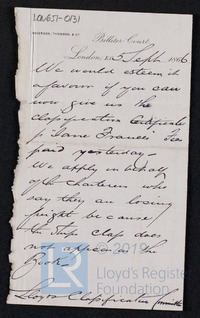 LON657-0131
Billiter Court,
London, 15 Sept. 1866
We would esteem it
a favour if you can
now give us the
Classification Certificate
p. Jane Frances Fee
paid yesterday
We apply on behalf
of the charterers who
say they are losing
freight because
the Ships Class does
not appear in the
Book.
Lloyds Classification Committee
LR
© 2019
Lloyd's Register
Foundation